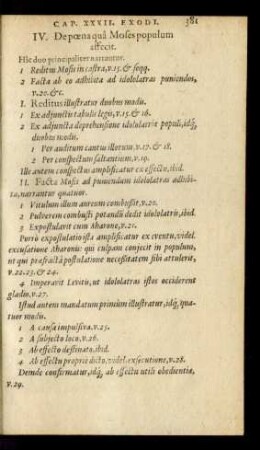 CAP. XXVII. EXODI. 381
IV. De pœna quâ Moses populum
affecit.
Hîc duo principaliter narrantur.
1 Reditus Mosis in castra, v.15. & seqq.
2 Facta ab eo adhibita ad idololatras puniendos,
v.20. &c.
I. Reditus illustratur duobus modis.
1 Ex adjunctis tabulis legis, v.15. & 16.
2 Ex adjuncta deprehensione idololatriæ populi, idq́,
duobus modis.
1 Per auditum cantus illorum, v.17. & 18.
2 Per conspectum saltantium, v.19.
Ille autem conspectus amplificatur ex effectis, ibid.
II. Facta Mosis ad puniendum idololatras adhibi-
ta, narrantur quatuor.
1 Vitulum illum aureum combussit, v.20.
2 Pulverem combusti potandū dedit idololatris, ibid.
3 Expostulavit cum Aharone, v.21.
Porrò expostulatio ista amplificatur ex eventu, videl.
excusatione Aharonis: qui culpam conjecit in populum,
ut qui præfractâ postulatione necessitatem sibi attulerit,
v.22. 23. & 24.
4 Imperavit Levitis, ut idololatras istos occiderent
gladio, v.27.
Istud autem mandatum principum illustratur, idq́, qua-
tuor modis.
1 A causa impulsiva, v.25.
2 A subjecto loco, v.26.
3 Ab effecto destinato, ibid.
4 Ab effectu proprio dicto, videl. exsecutione, v.28.
Deinde confirmatur, idq́, ab effectu utili obedientiæ,
v.29.